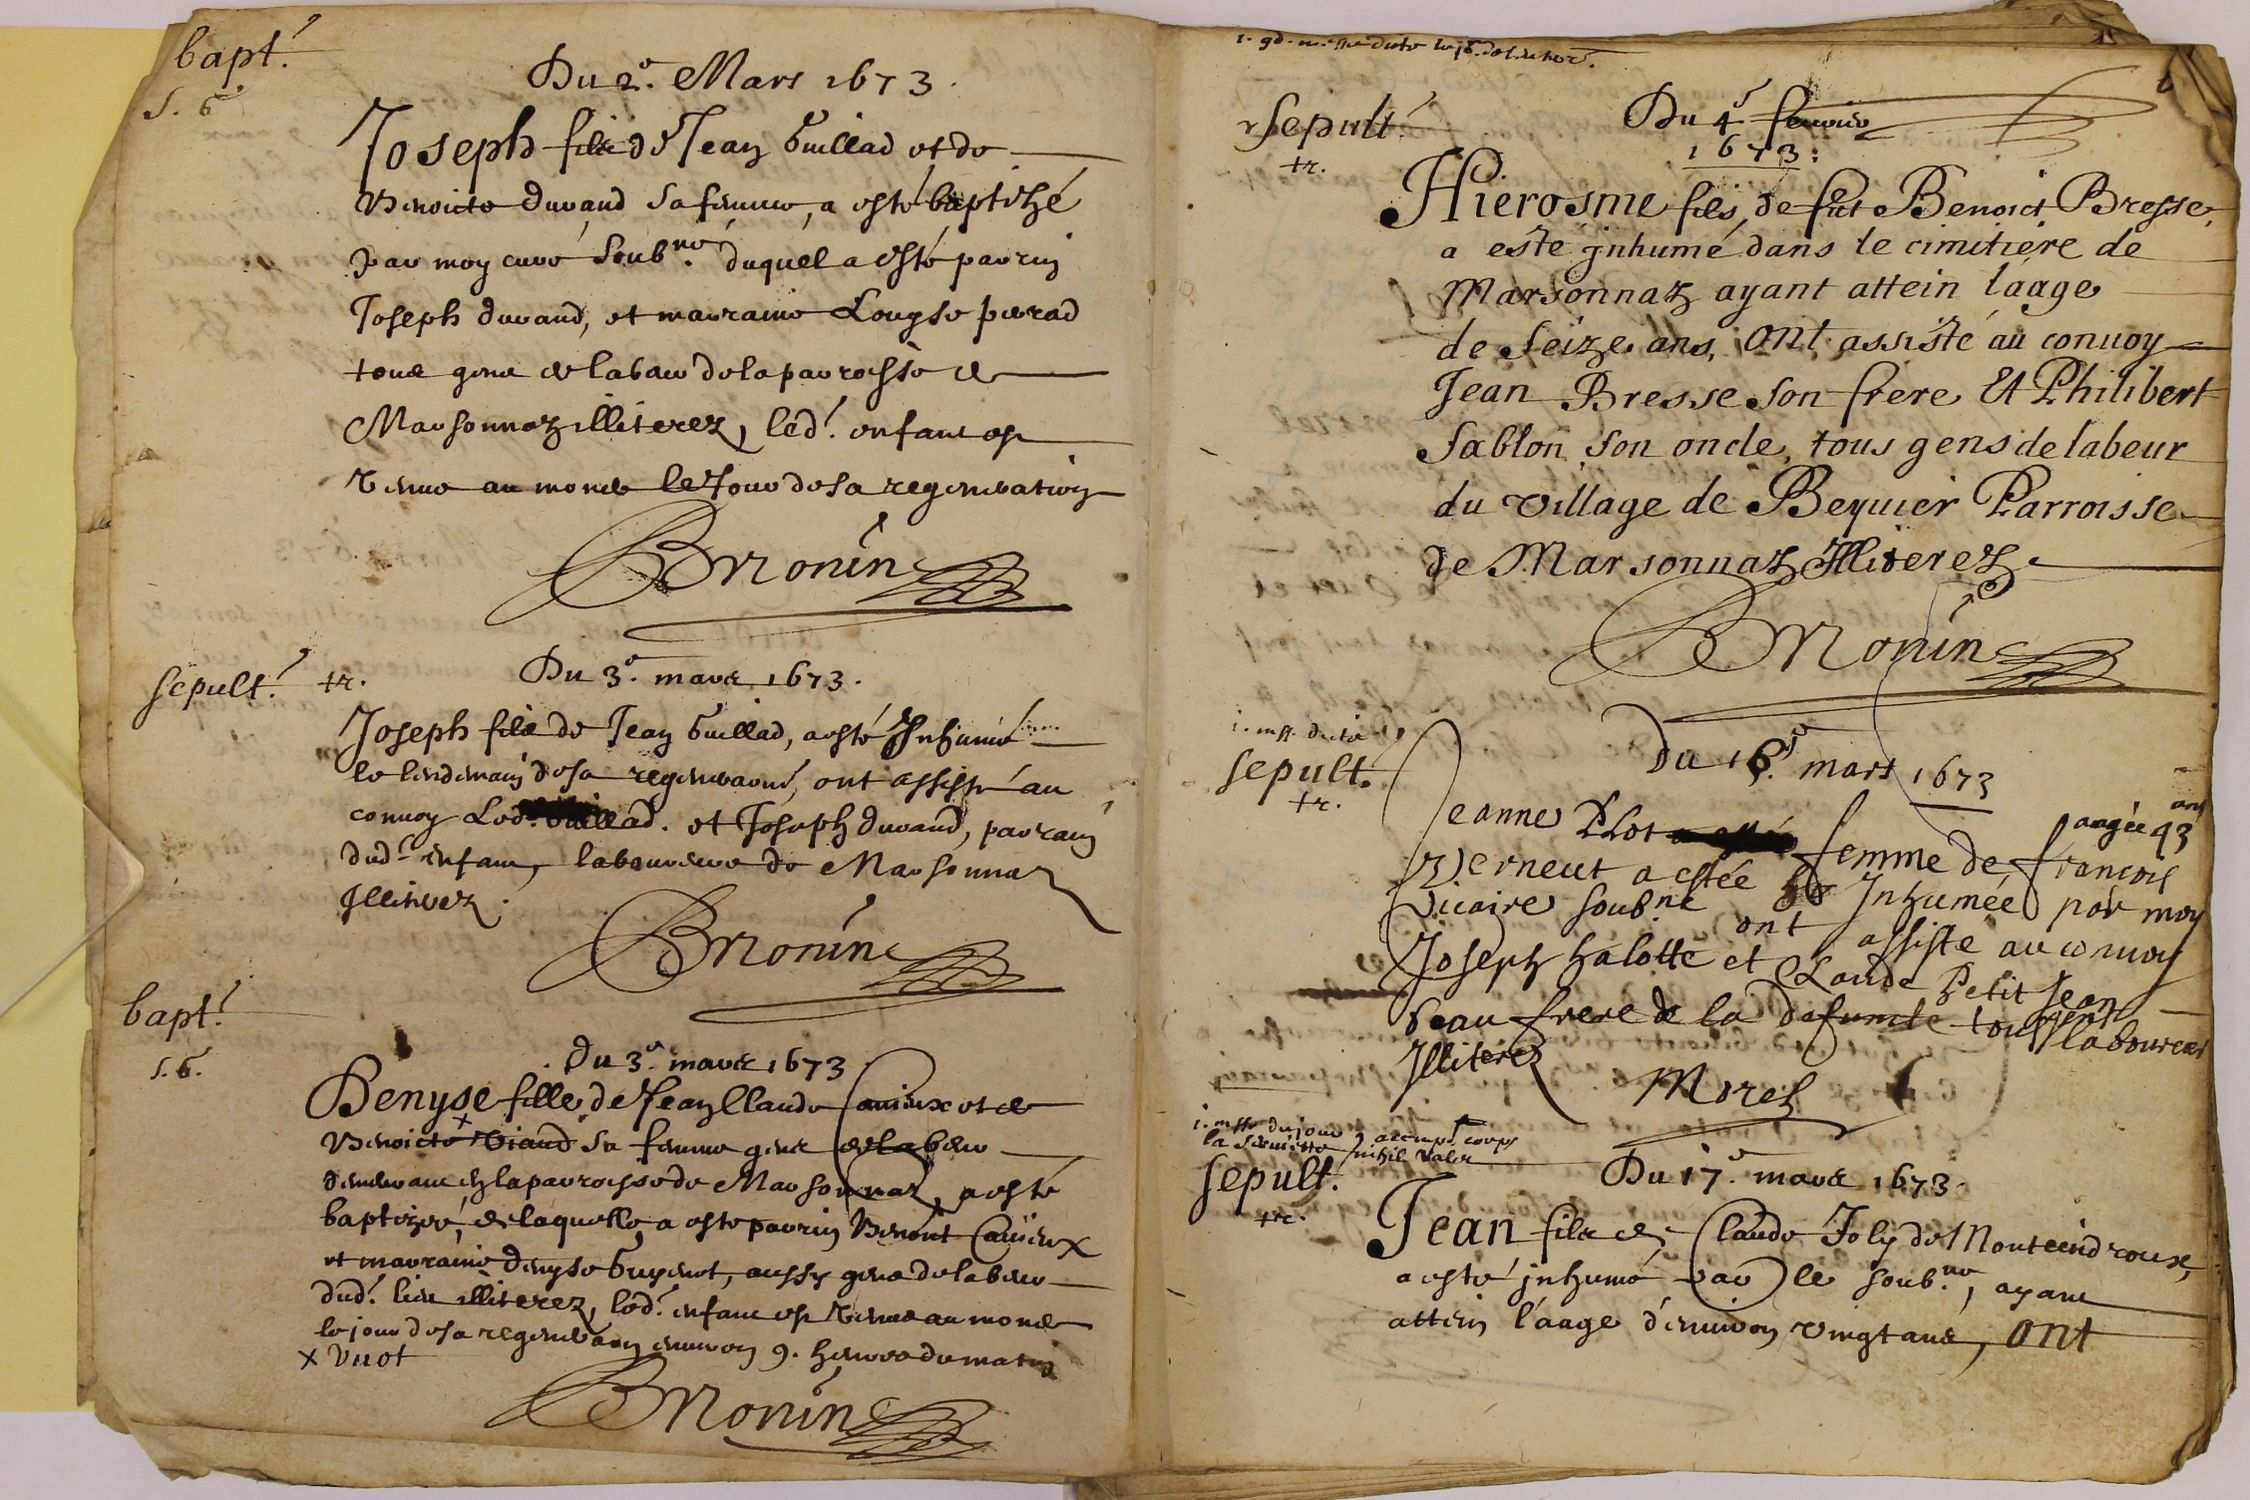 bapt.
s. 6
Du 2e. Mars 1673.
Joseph fils de Jean Guillad et de
Benoicte duvand sa femme, a esté baptizé
par moy curé soubne. duquel a esté parrin
Joseph duvand, et marraine Louyse perrad
tous gens de labeur de la parroisse de
Marsonnaz illiterez, led. enfant est
venu au monde le jour de sa regeneration
BMonin
sepult. +r.
Du 3e. mars 1673.
Joseph fils de Jean Guillad, a esté Inhumé
le lendemain de sa regeneraōn, ont assisté au
convoy Led. Guillad. et Joseph duvand, parrain
dud. enfant, laboureurs de Marsonnaz
Illiterez.
BMonin
bapt.
s. 6.
Du 3e. mars 1673
Denyse fille de Jean Claude Cavieux et de
Benoicte x Viand sa femme gens de labeur
demeurant en la parroisse de Marsonnaz, a esté
baptizée, de laquelle a esté parrin Benoit Cavieux
et marraine denyse Guyenot, aussy gens de labeur
dud. lieu illiterez, led. enfant est venue au monde
le jour de sa regeneraōn environ 9. heures du matin
x Vuot
BMonin
sepult.
+r.
Du 4e fevrier
1673.
Hierosme fils de fût Benoict Bresse,
a esté jnhumé dans le cimitiere de
Marsonnaz ayant attein l'aage
de seize ans, ont assisté au convoy
Jean Bresse son frere Et Philibert
Sablon son oncle, tous gens de labeur
du village de Beyvier Parroisse
de Marsonnaz Illiterez.
BMonin
i. mss. dicte
sepult.
+r.
Du 16.e mars 1673
Jeanne Plot femme de françois aagée 93 ans
Verneut a estée Inhumée par moy
Vicaire soubne ont assisté au convoy
Joseph halotte et Claude Petit Jean
beau frere de la defuncte tous gent laboureur
Illiterez
Morel
i. messe du jour
la serviette accup. corps
nihil valer
sepult.
+r.
Du 17.e mars 1673.
Jean fils de Claude Joly de Monteindroux,
a esté jnhumé par le soub.ne, ayant
attein l'aage d'environ vingt ans, ont